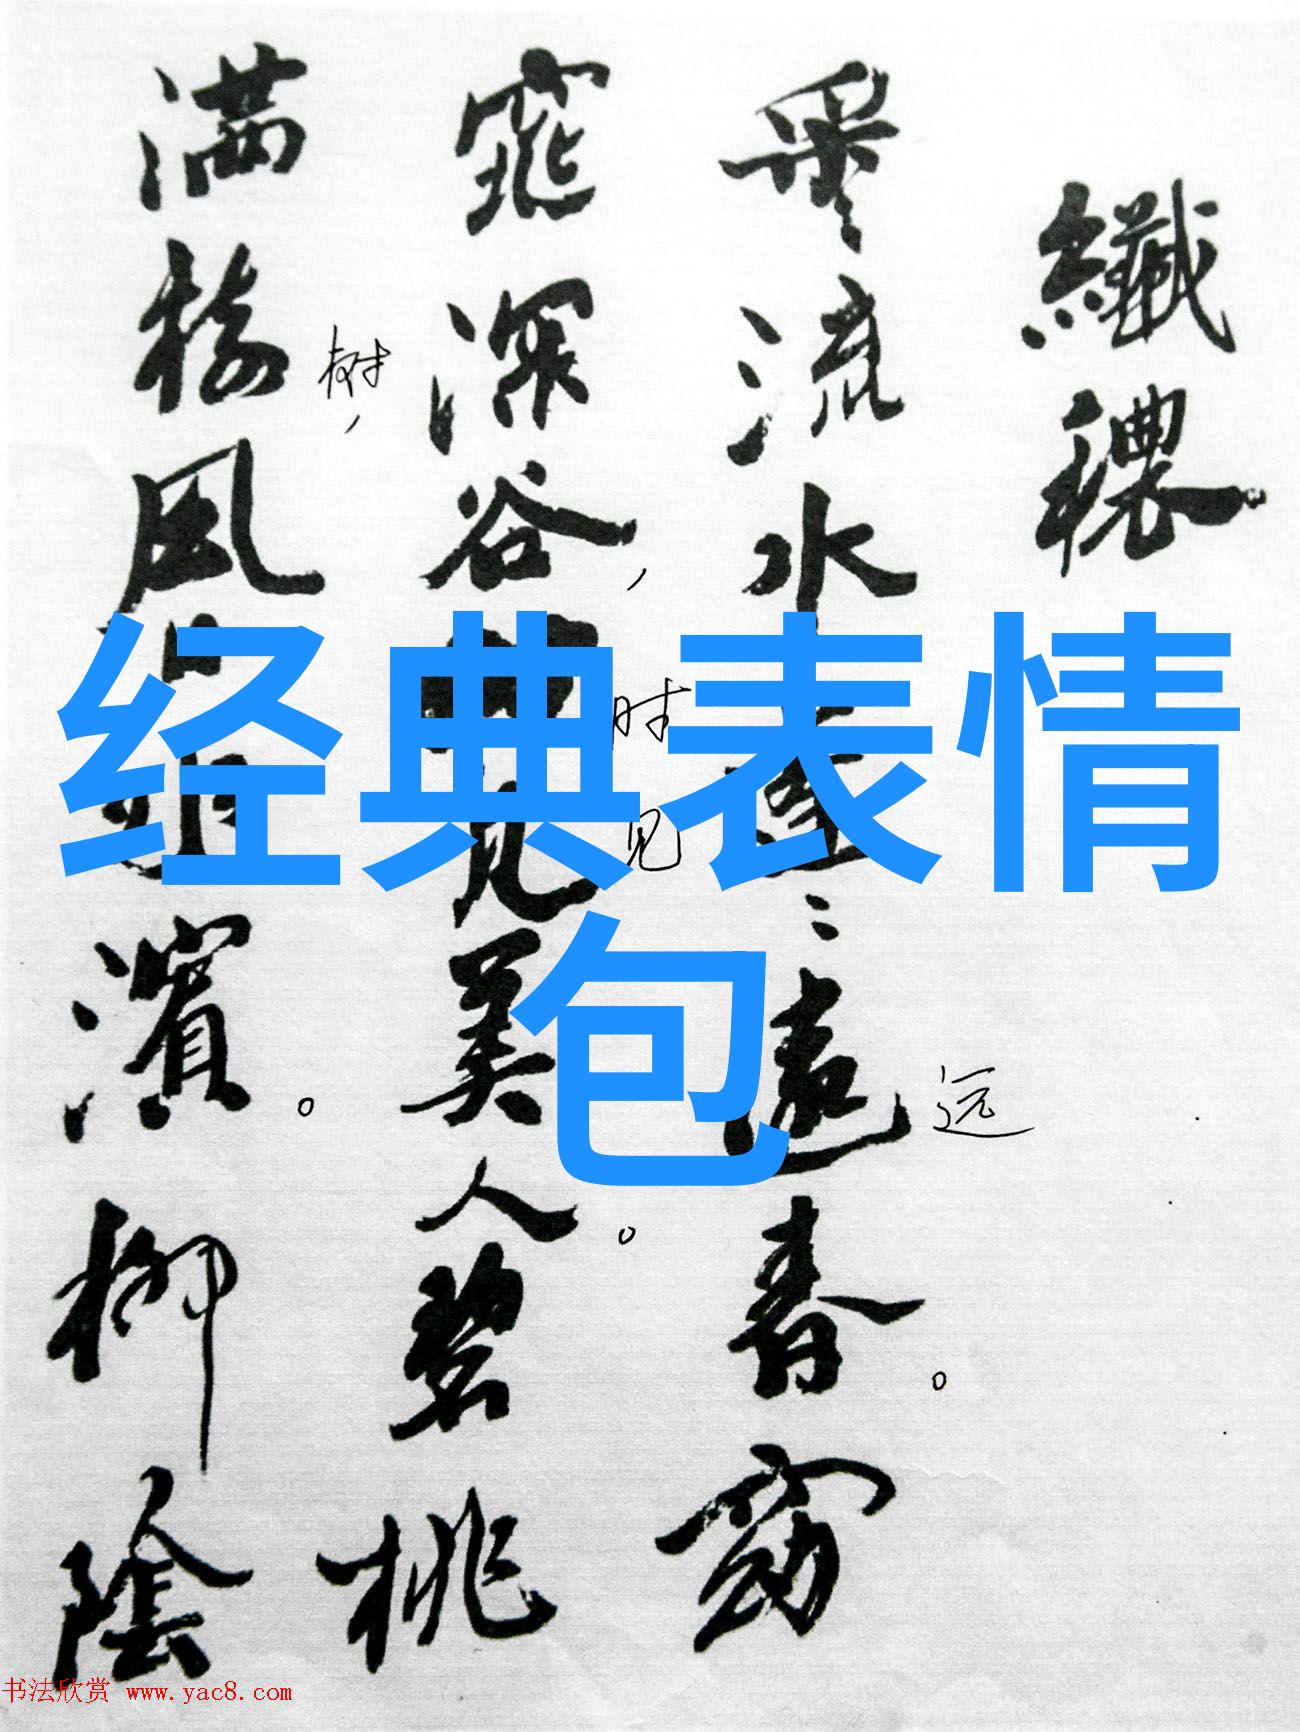 纖穠
采流水蓬〻遠春窈
窕深谷時見美人碧桃
满樹風日水濱柳陰
树，
，
时
见
远
。
。
。
经典表情
包
书法欣赏 www.yac8.com